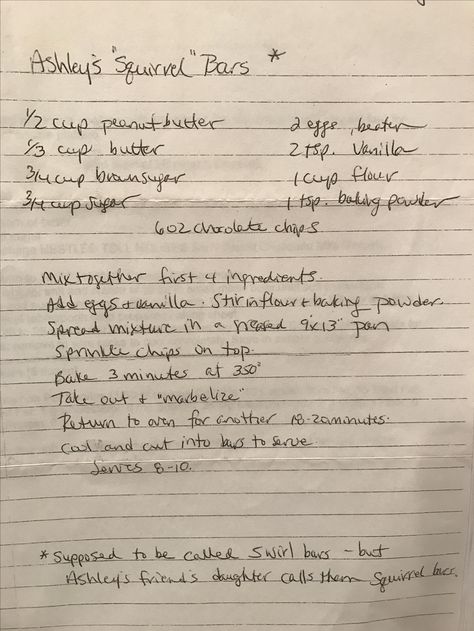 Ashley's "Squirrel" Bars *
1/2 cup peanut butter 2 eggs, beaten
1/3 cup butter 2 tsp. Vanilla
3/4 cup brown sugar 1 cup flour
3/4 cup sugar 1 tsp. baking powder
6oz chocolate chips
Mix together first 4 ingredients.
Add eggs + vanilla. Stir in flour + baking powder.
Spread mixture in a 9x13" pan
Sprinkle chips on top.
Bake 3 minutes at 350°
Take out + "marbelize"
Return to oven for another 18-20 minutes.
Cool and cut into bars to serve.
Serves 8-10.
* Supposed to be called Swirl bars - but
Ashley's friend's daughter calls them Squirrel bars.